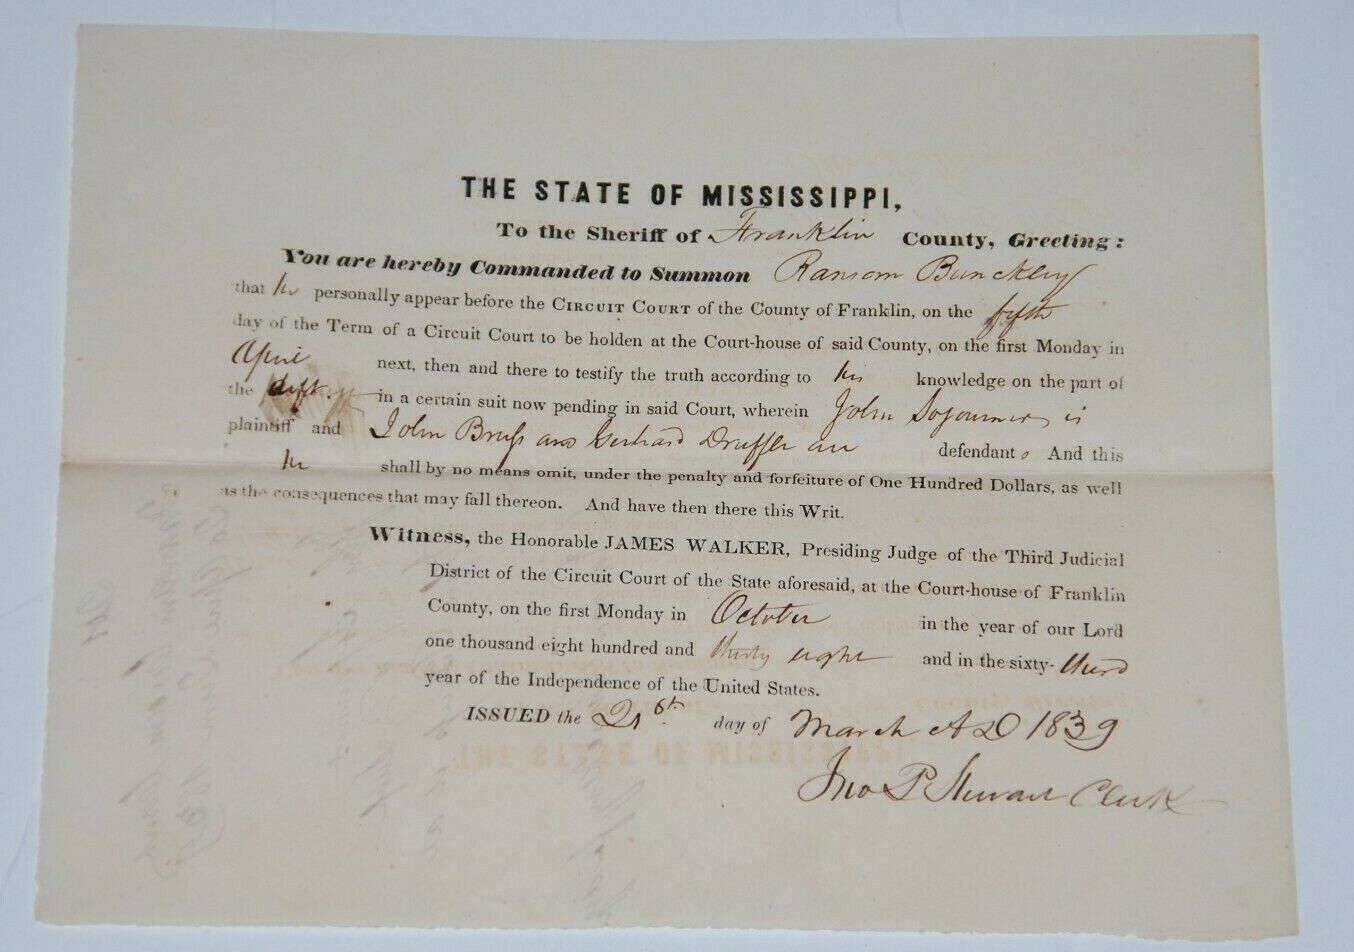 THE STATE OF MISSISSIPPI,
To the Sheriff of Franklin County, Greeting:
You are hereby Commanded to Summon Ransom Bunckley
that he personally appear before the CIRCUIT COURT of the County of Franklin, on the fifth
day of the Term of a Circuit Court to be holden at the Court-house of said County, on the first Monday in
April next, then and there to testify the truth according to his knowledge on the part of
the in a certain suit now pending in said Court, wherein John Sojourner is
plaintiff and John and Druffer are defendants And this
he shall by no means omit, under the penalty and forfeiture of One Hundred Dollars, as well
as the consequences that may fall thereon. And have then there this Writ.
Witness, the Honorable JAMES WALKER, Presiding Judge of the Third Judicial
District of the Circuit Court of the State aforesaid, at the Court-house of Franklin
County, on the first Monday in October in the year of our Lord
one thousand eight hundred and thirty eight and in the sixty-third
year of the Independence of the United States.
ISSUED the day of March AD 1839
Jno P Stewart Clerk